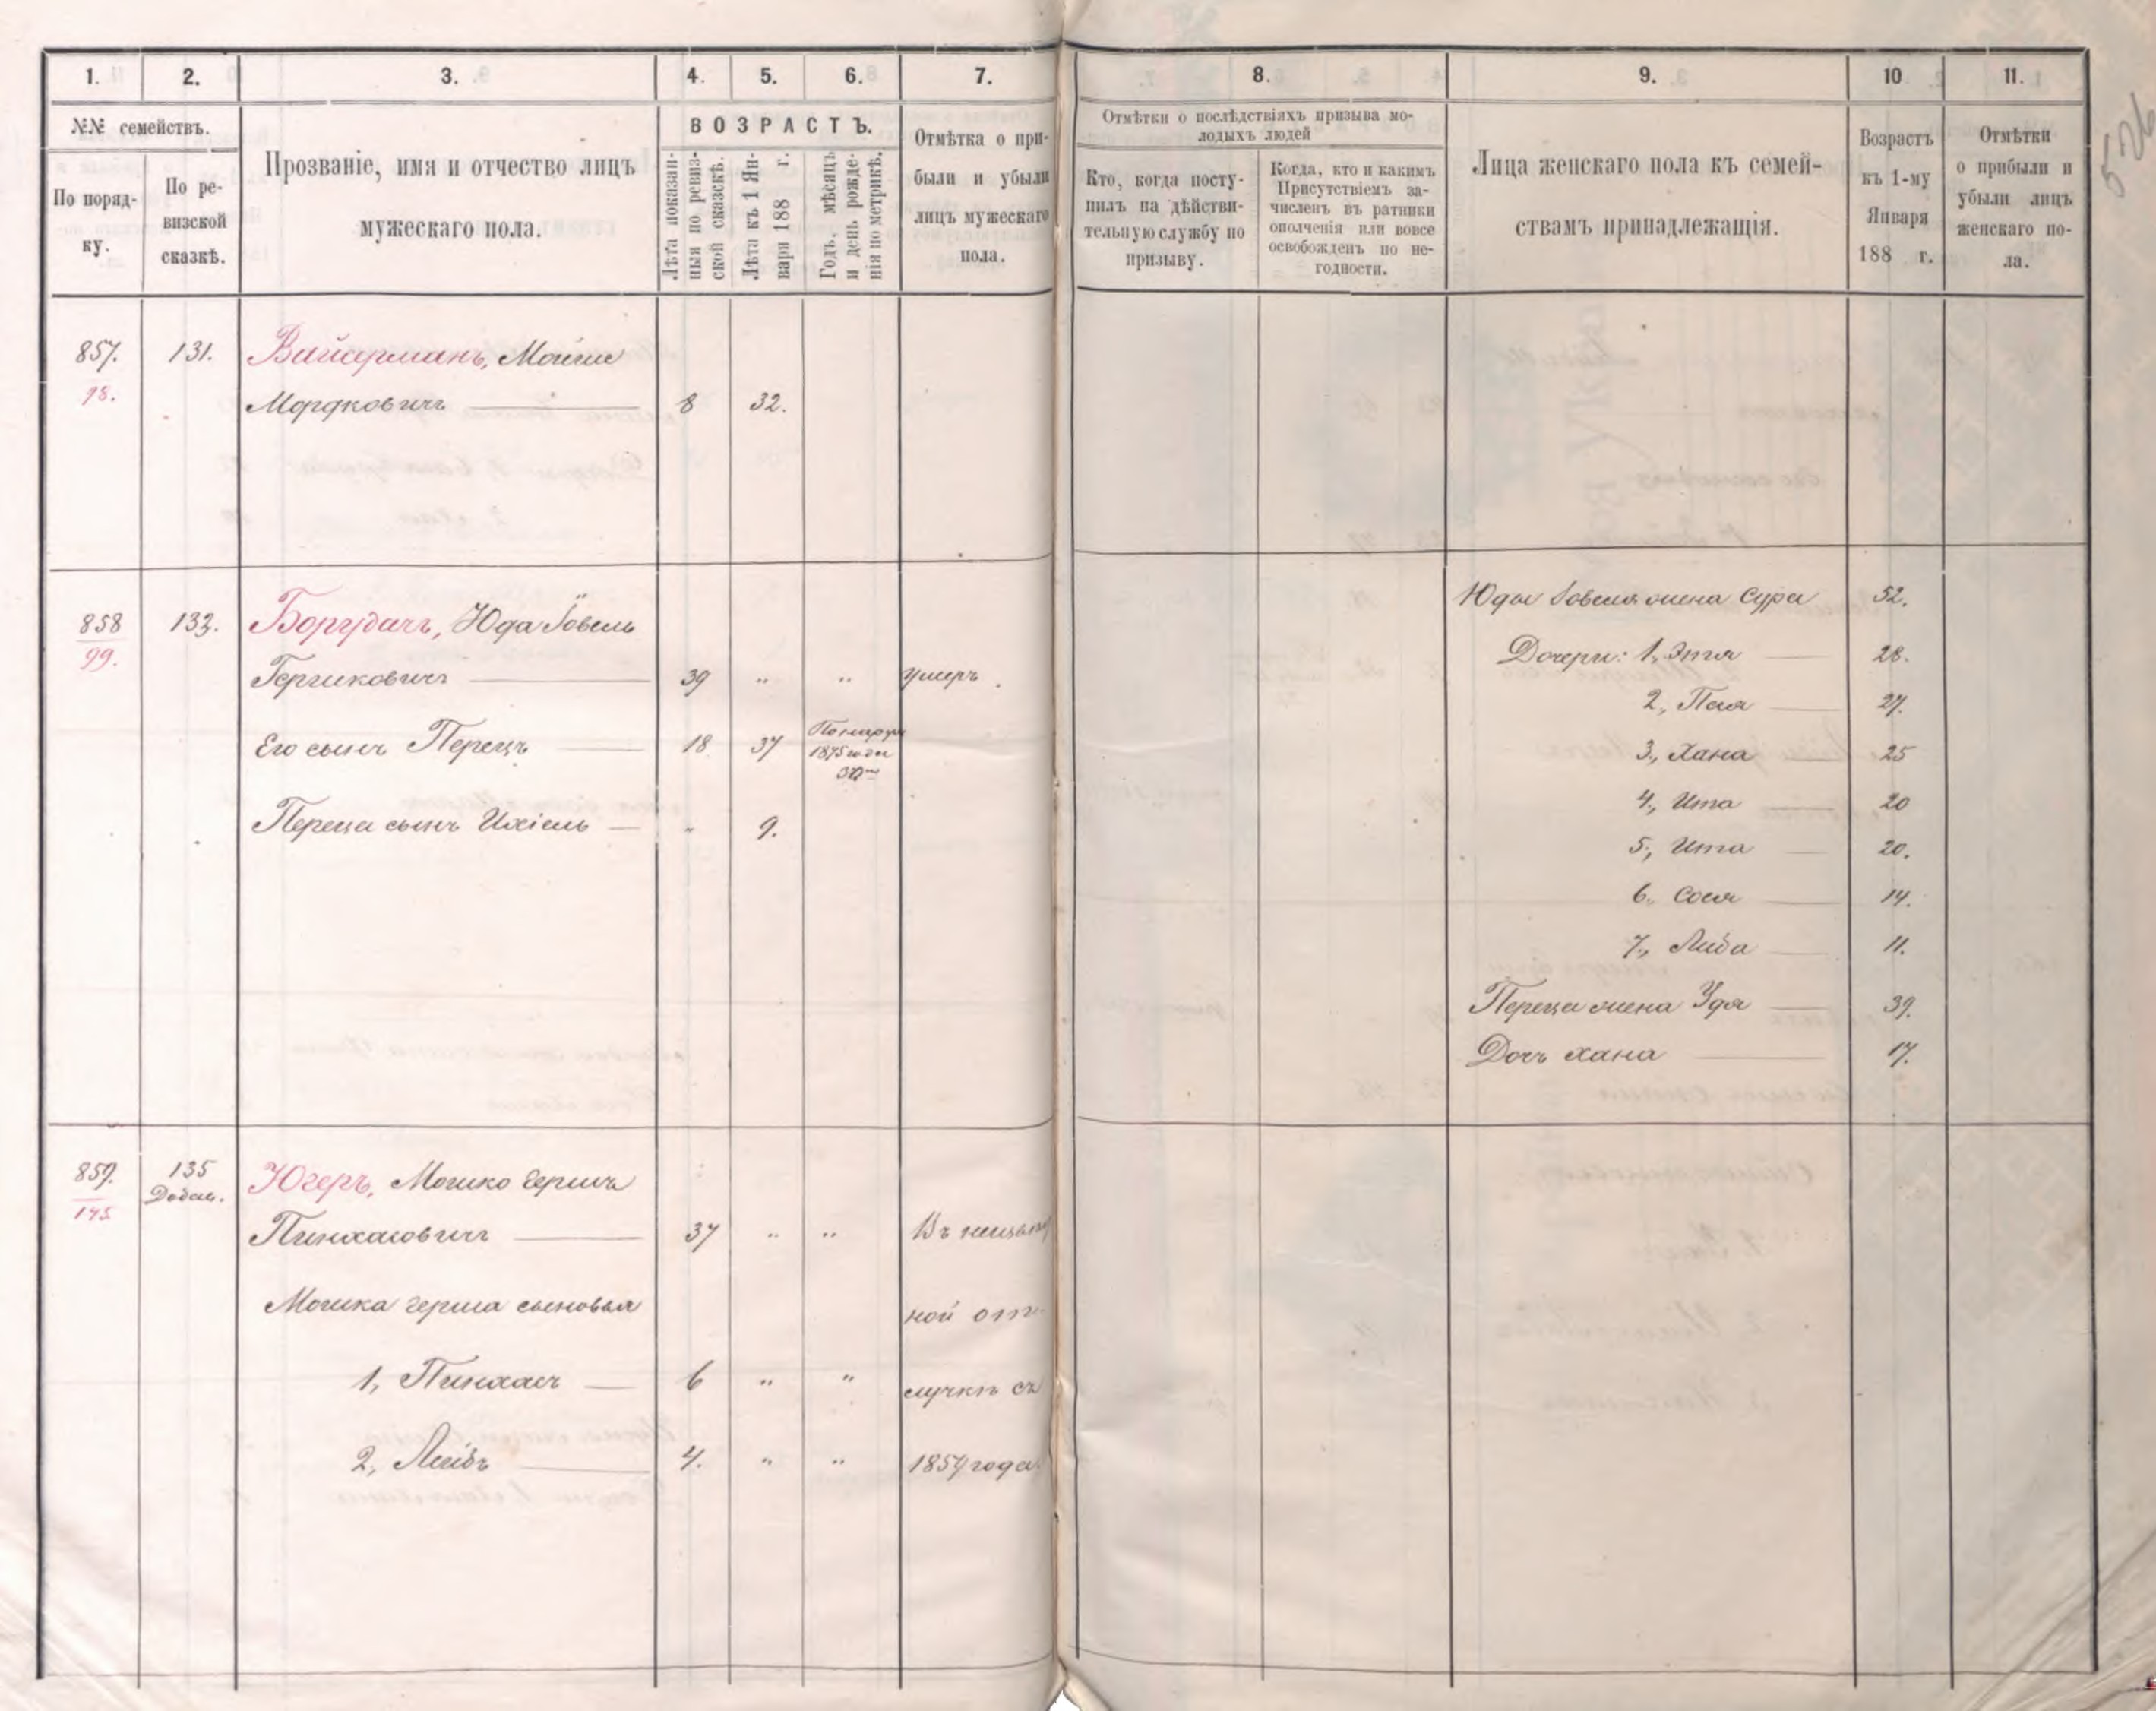 1. 2. 3. 4. 5. 6. 7. 8. 9. 10 11.
№№ семействъ.
По поряд-
ку.
По ре-
визской
сказкѣ.
Прозваніе, имя и отчество лицъ
мужескаго пола.
ВОЗРАСТЪ.
Лѣта показан-
ныя по ревиз-
ской сказкѣ.
Лѣта къ 1 Ян-
варя 188 г.
Годъ, мѣсяцъ
и день рожде-
нія по метрикѣ.
Отмѣтка о при-
были и убыли
лицъ мужескаго
пола.
Отмѣтки о послѣдствіяхъ призыва мо-
лодыхъ людей
Кто, когда посту-
пилъ на дѣйстви-
тельную службу по
призыву.
Когда, кто и какимъ
Присутствіемъ за-
численъ въ ратники
ополченія или вовсе
освобожденъ по не-
годности.
Лица женскаго пола къ семей-
ствамъ принадлежащія.
Возрастъ
къ 1-му
Января
188 г.
Отмѣтки
о прибыли и
убыли лицъ
женскаго по-
ла.
857. 131. Вайсерманъ, Мойше
98. Мордковичъ 8 32.
858 132. Боргудачъ, Юда Іовель
99.
Гершковичъ 39 " " умеръ.
Его сынъ Перецъ 18 37
1875 года
Переца сынъ Ихіель " 9.
Юды Іовеля жена Сура 52.
Дочери: 1, Этя 28.
2, Песя 27.
3, Хана 25
4, Ита 20
5, Ита 20.
6. Сося 14.
7, Либа 11.
Переца жена Удя 39.
Дочь Хана 17.
859. 135 Югеръ, Мошко Гершъ
145 Добав.
Пинхасовичъ 37 " " Въ неизвѣст
Мошка Герша сыновья ной от-
1, Пинхасъ 6 " " лучкѣ съ
2, Лейбъ 4. " " 1854 года.